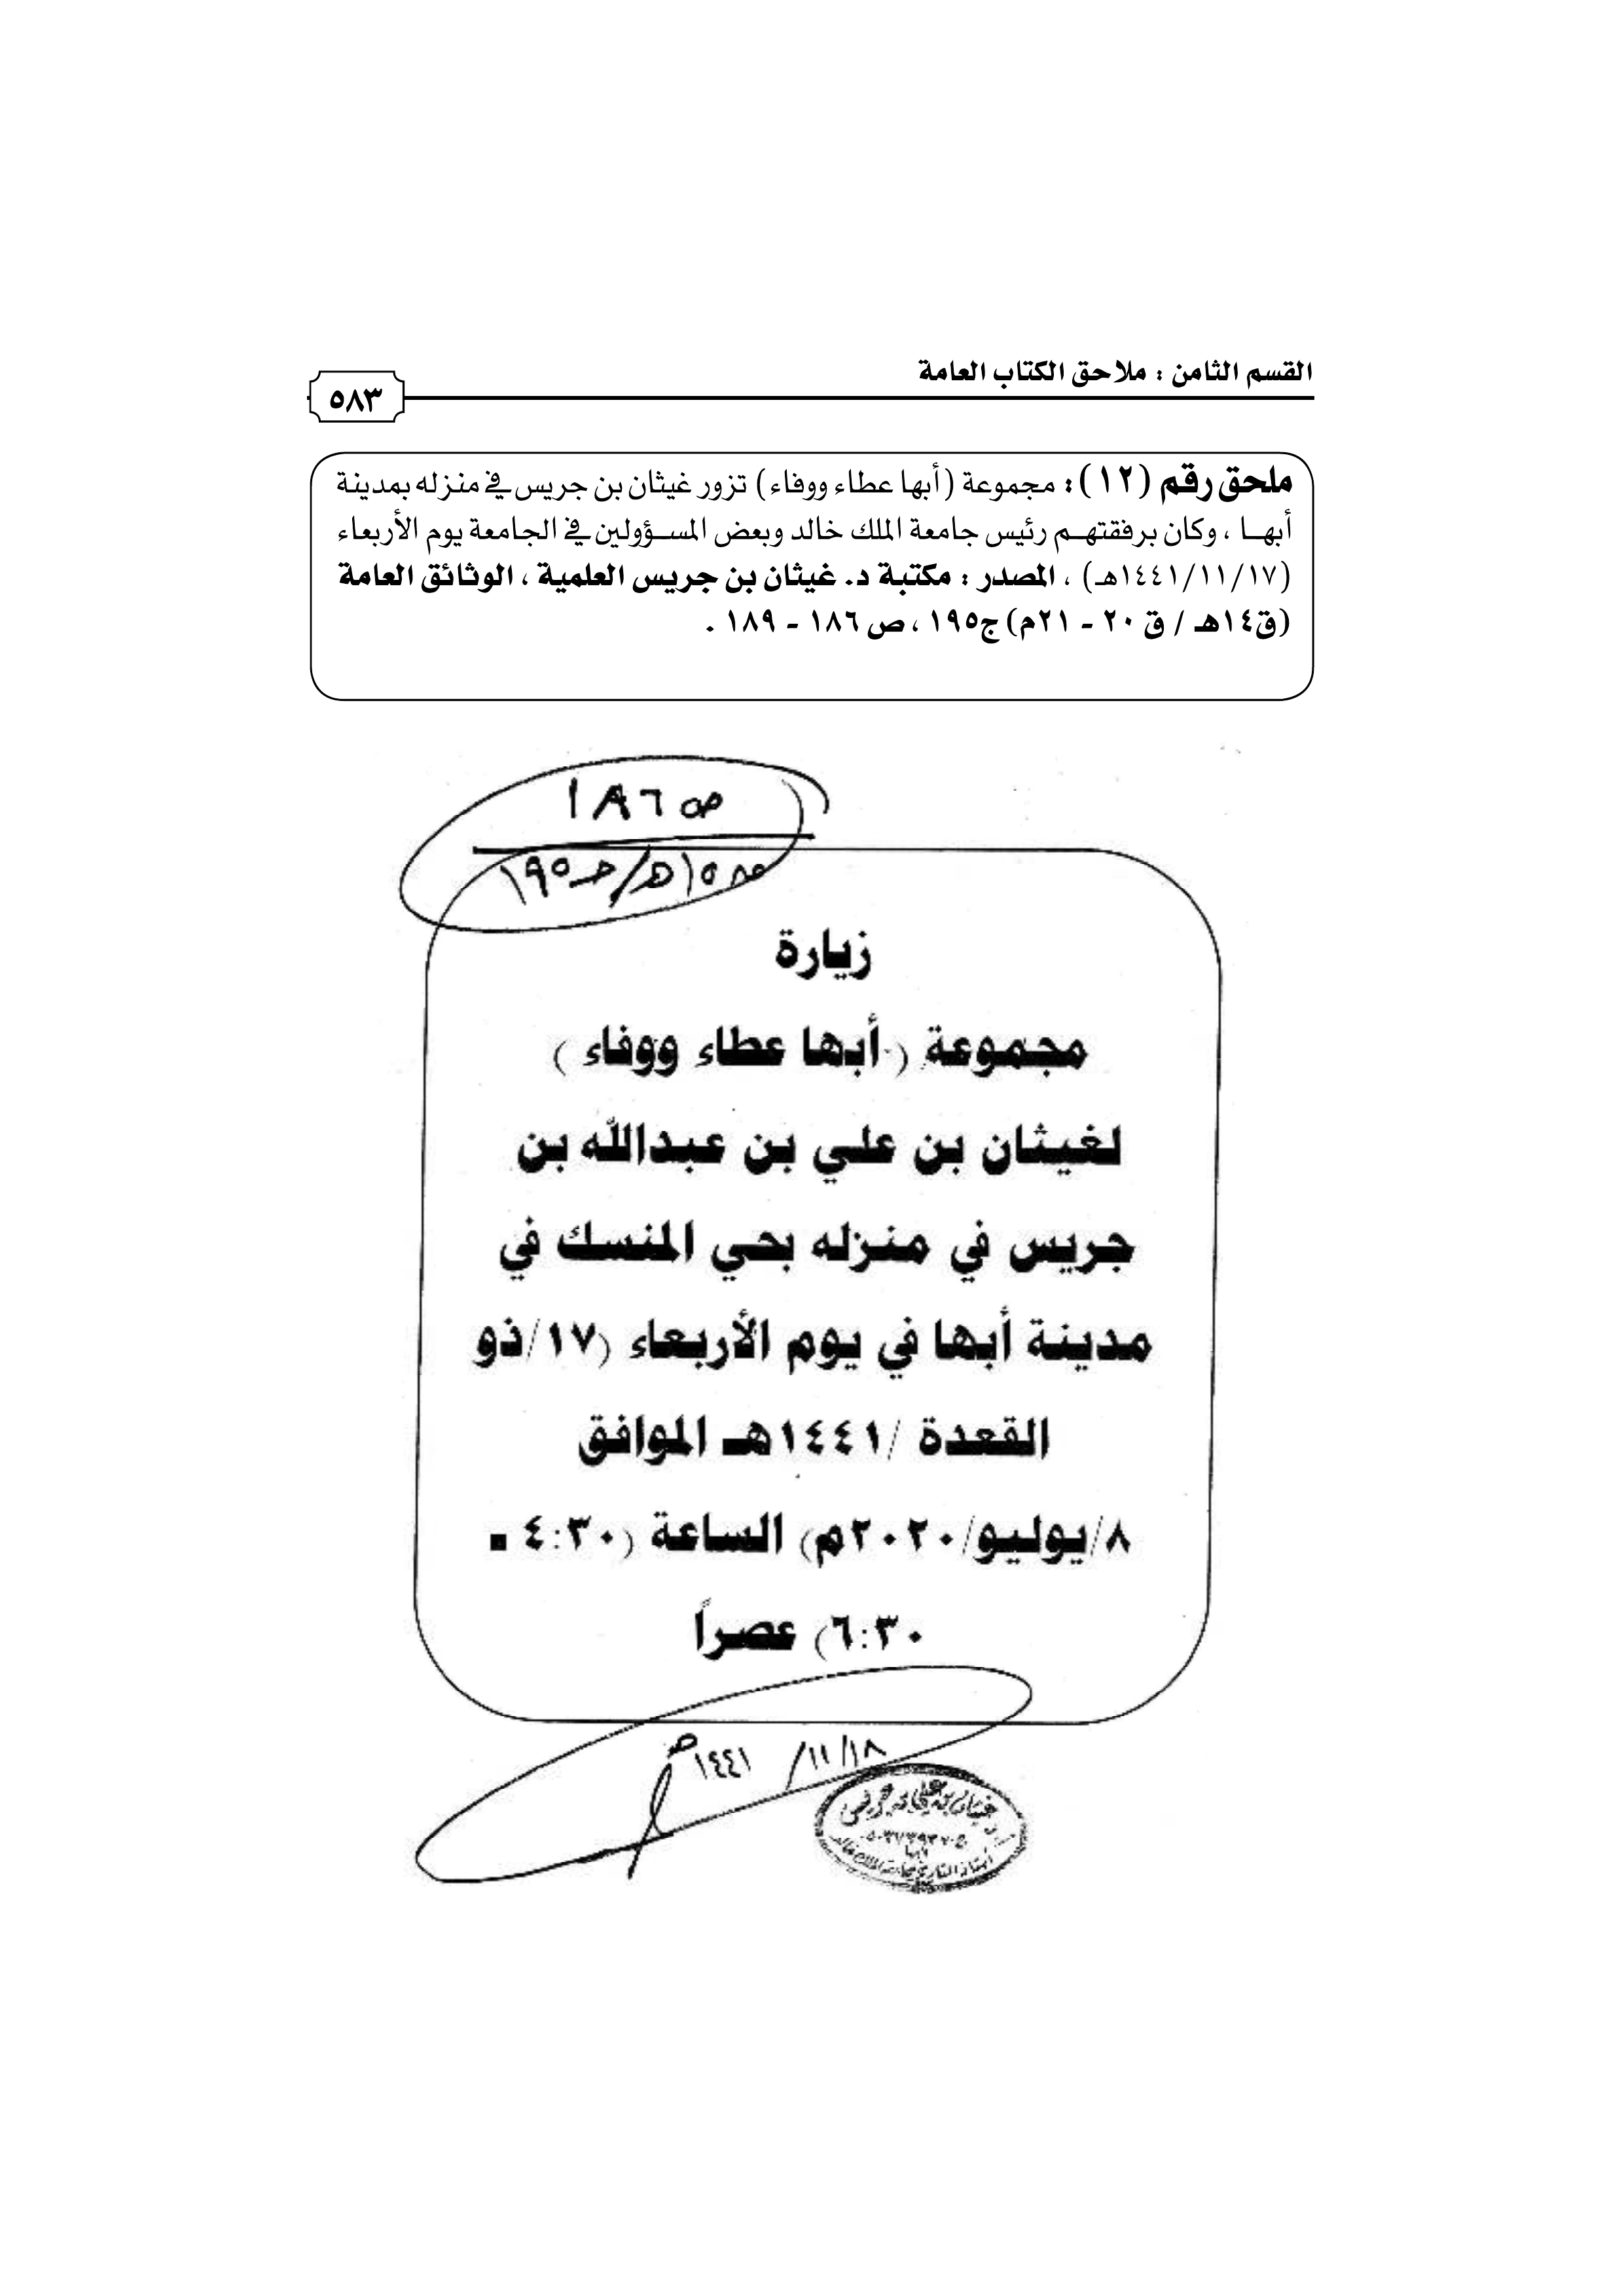 القسم الثامن : ملاحق الكتاب العامة
٥٨٣
ملحق رقم (١٢): مجموعة (أبها عطاء ووفاء) تزور غيثان بن جريس في منزله بمدينة
أبهـا ، وكان برفقتهـم رئيس جامعة الملك خالد وبعض المسـؤولين في الجامعة يوم الأربعاء
(١٤٤١/١١/١٧هـ) ، المصدر : مكتبة د. غيثان بن جريس العلمية ، الوثائق العامة
(ق١٤هـ / ق ٢٠ - ٢١م) ج١٩٥ ، ص ١٨٦ - ١٨٩ .
ص ١٨٦
١٥هـ/جـ١٩٥
زيارة
مجموعة ( أبها عطاء ووفاء )
لغيثان بن علي بن عبدالله بن
جريس في منزله بحي المنسك في
مدينة أبها في يوم الأربعاء (١٧/ذو
القعدة /١٤٤١هـ الموافق
٨/يوليو/٢٠٢٠م) الساعة (٤:٣٠ -
٦:٣٠) عصراً
١٨/١١/ ١٤٤١هـ
أستاذ التاريخ بجامعة الملك خالد